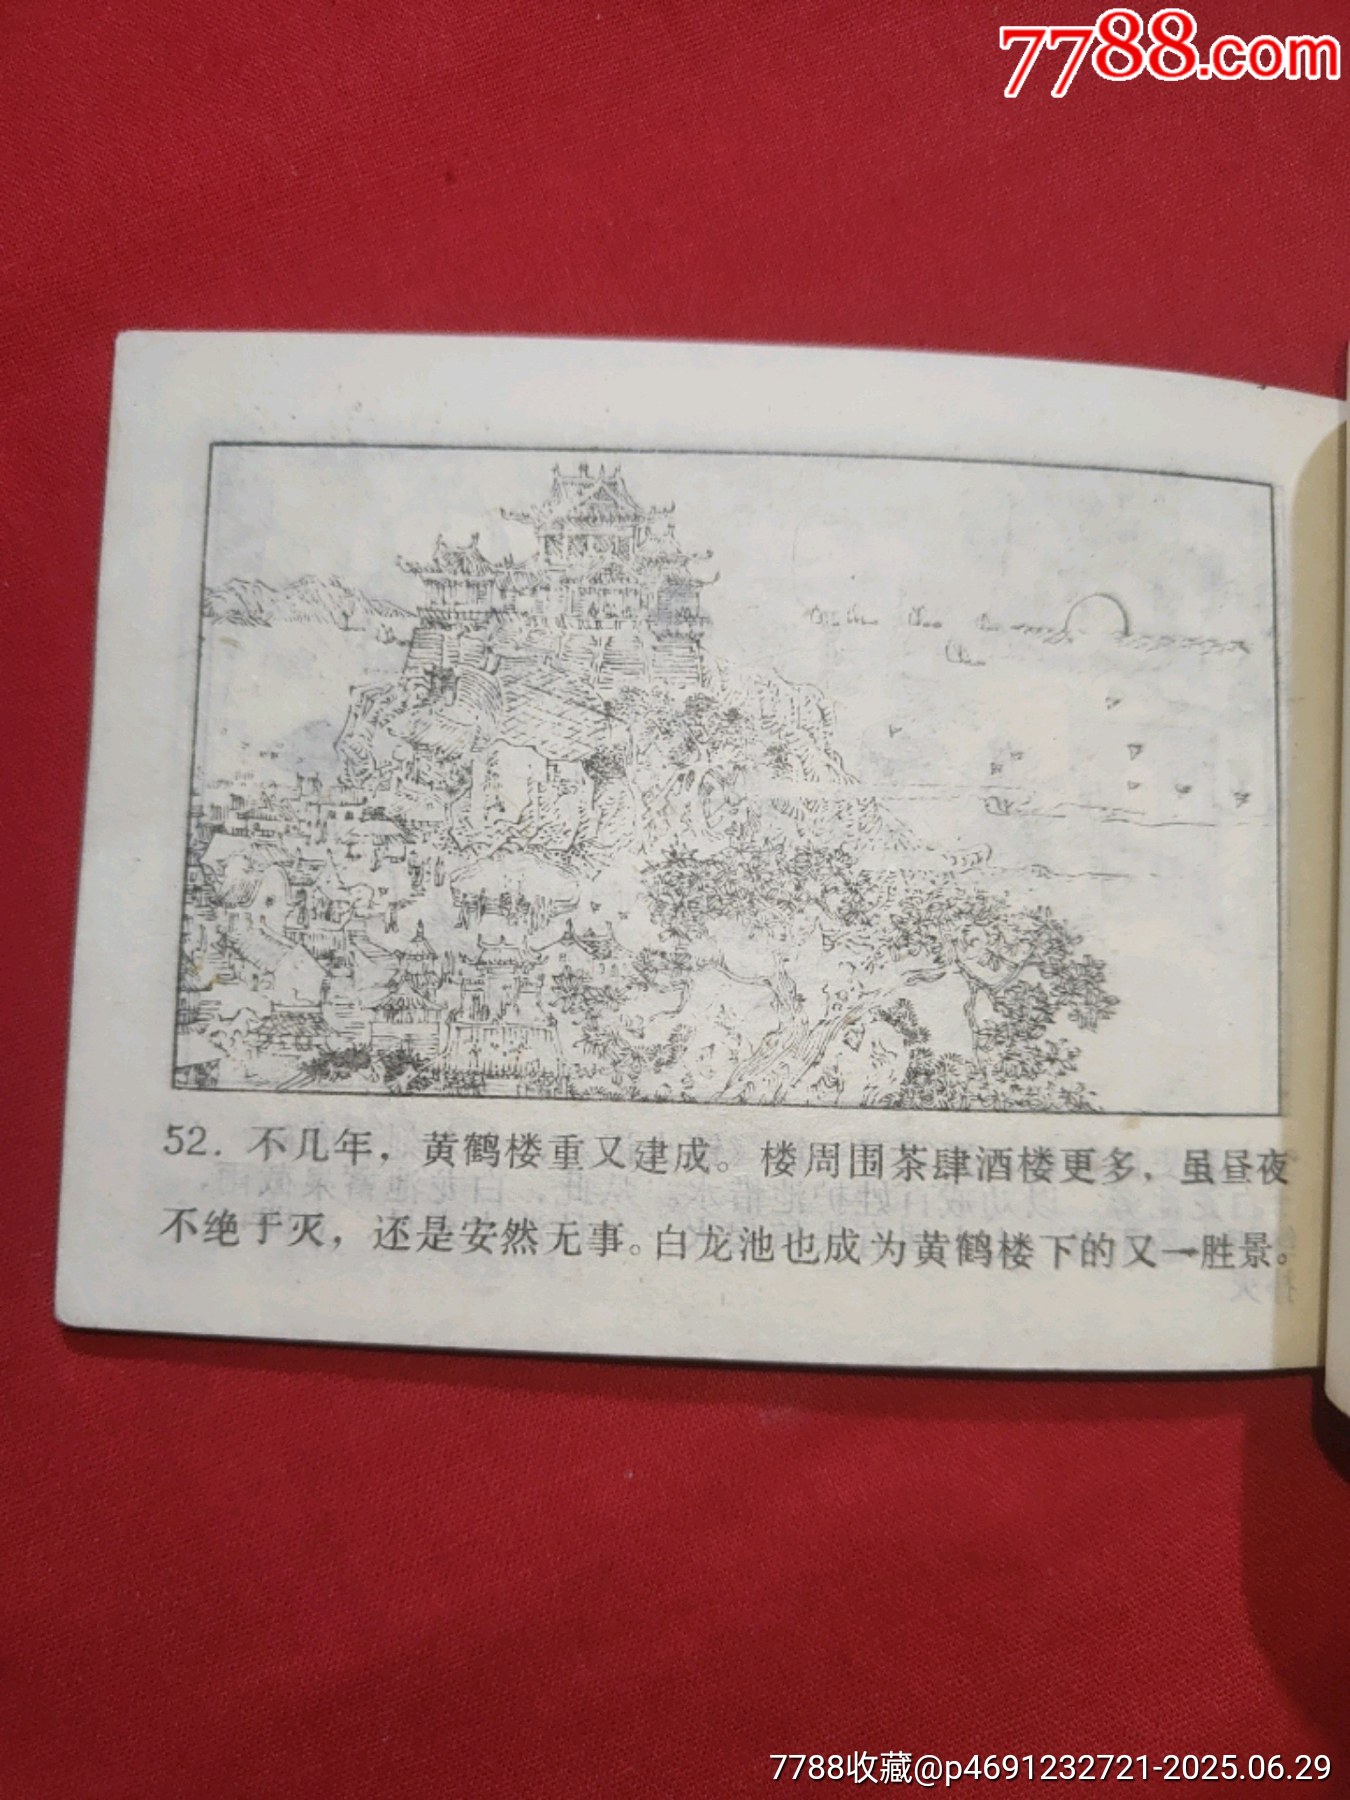 7788.com
52. 不几年，黄鹤楼重又建成。楼周围茶肆酒楼更多，虽昼夜
不绝于灭，还是安然无事。白龙池也成为黄鹤楼下的又一胜景。
7788收藏@p4691232721-2025.06.29